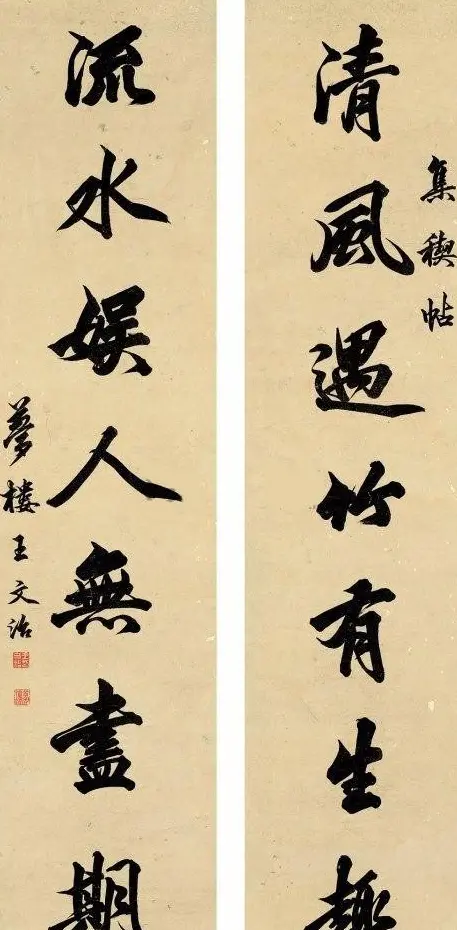 集稧帖
清風遇竹有生趣
流水娛人無盡期
夢樓王文治